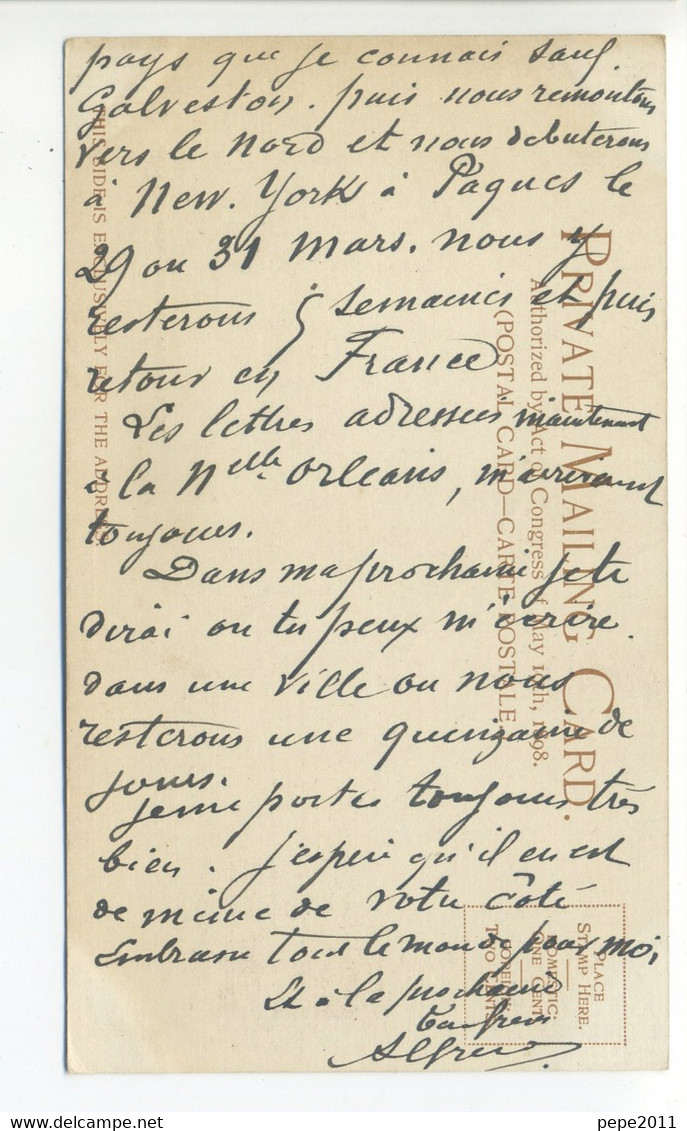 pays que je connais sauf
Galveston. puis nous remontons
vers le Nord et nous debuterons
à New. York à Paques le
29 ou 31 Mars. nous y
resterons 5 semaines et puis
retour en France
Les lettres adressees maintenant
a la Nelle Orleans, m'arrivent
toujours.
Dans ma prochaine je te
dirai ou tu peux m'ecrire.
dans une ville ou nous
resterons une quinzaine de
jours.
je me portes toujours très
bien. j'espere qu'il en est
de même de votre côté
Embrasse tout le monde pour moi,
Et à la prochaine
ton frere
Alfred
PRIVATE MAILING CARD.
Authorized by Act of Congress of May 19th, 1898.
(POSTAL CARD—CARTE POSTALE)
THIS SIDE IS EXCLUSIVELY FOR THE ADDRESS
PLACE
STAMP HERE.
DOMESTIC:
ONE CENT
FOREIGN:
TWO CENTS
pepe2011